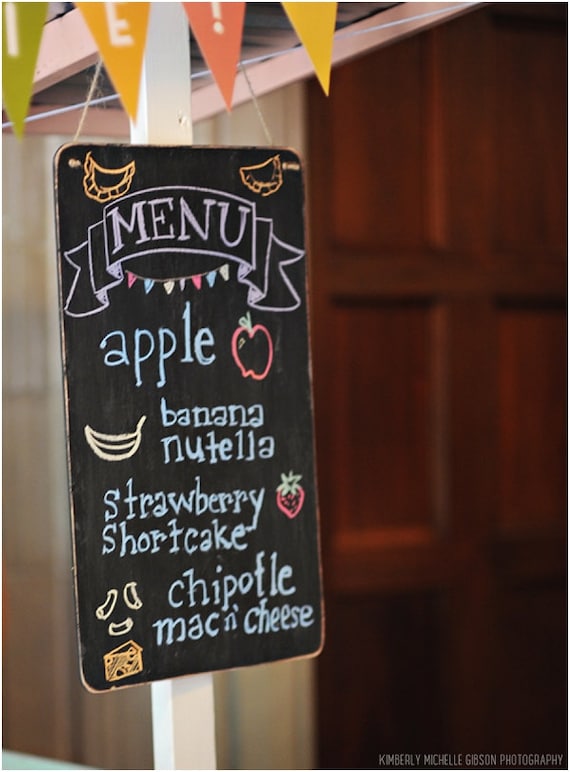 E !
MENU
apple
banana
nutella
strawberry
shortcake
chipotle
mac n' cheese
KIMBERLY MICHELLE GIBSON PHOTOGRAPHY